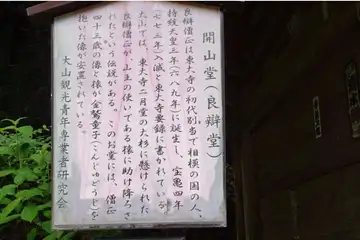 開山堂(良辯堂)
良辯僧正は東大寺の初代別当で相模の国の人、
持統天皇三年(六八九年)に誕生し、宝亀四年
(七七三年)入滅と東大寺要録に書かれている
大山では、東大寺二月堂の大杉に懸けられた
良辯僧正が、山王の使いである猿に助け降ろさ
れたという伝説がある。このお堂には、僧正
四十三歳の像と猿が金鷲童子(こんじゅどうじ)を
抱いた像が安置されています
大山観光青年専業者研究会